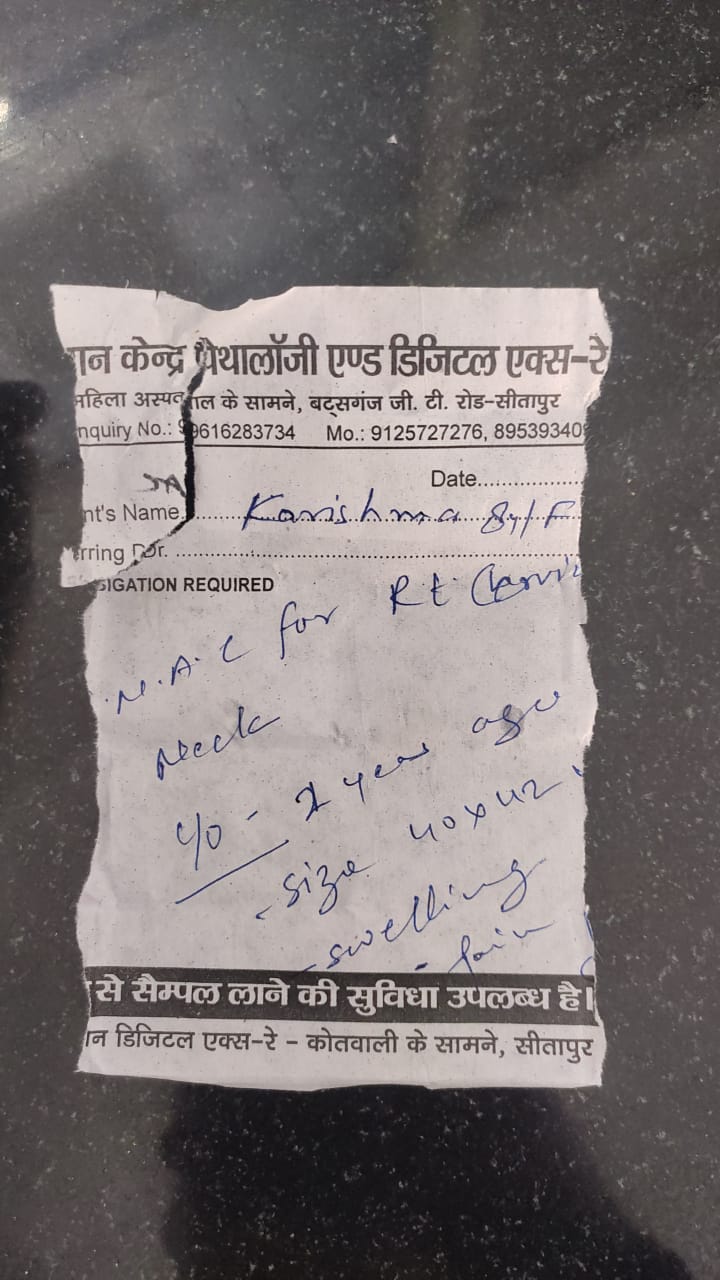 ान केन्द्र पैथालॉजी एण्ड डिजिटल एक्स-रे
महिला अस्पताल के सामने, बट्सगंज जी. टी. रोड-सीतापुर
nquiry No.: 99616283734 Mo.: 9125727276, 89539340
Date
nt's Name Karishma 8y/F
rring Dr.
SIGATION REQUIRED
N.A.C for Rt.
Neck
c/o - year ago
- size 40x42
- swelling
- pain
से सैम्पल लाने की सुविधा उपलब्ध है।
ान डिजिटल एक्स-रे - कोतवाली के सामने, सीतापुर